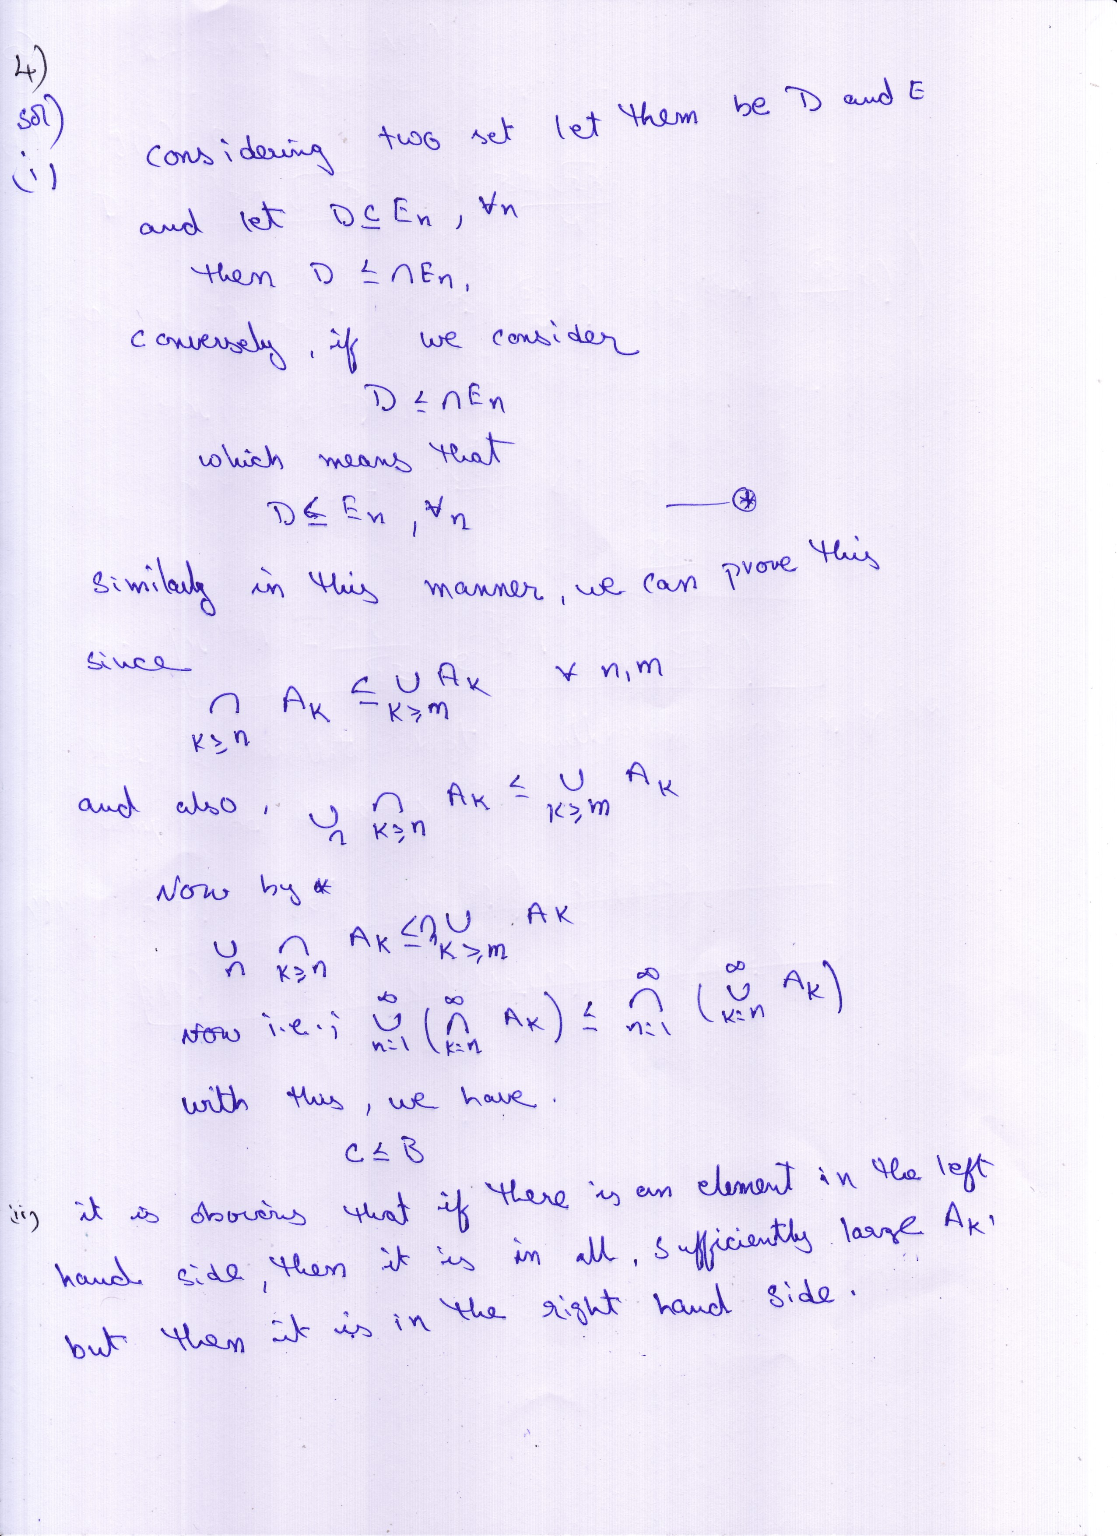 4)
sol)
(i) considering two set let them be D and E
and let D ⊆ En, ∀n
then D ≤ ∩En,
conversely, if we consider
D ≤ ∩En
which means that
D ⊆ En, ∀n —⊛
similarly in this manner, we can prove this
since
∩ Ak ⊆ ∪ Ak ∀ n,m
k≥n k≥m
and also, ∪ ∩ Ak ≤ ∪ Ak
n k≥n k≥m
Now by *
∪ ∩ Ak ≤ ∩ ∪ Ak
n k≥n k≥m
Now i.e.; ∞∪n=1 (∞∩k=n Ak) ≤ ∞∩n=1 (∞∪k=n Ak)
with this, we have.
C ≤ B
ii) it is obvious that if there is an element in the left
hand side, then it is in all, sufficiently large Ak,
but then it is in the right hand side.